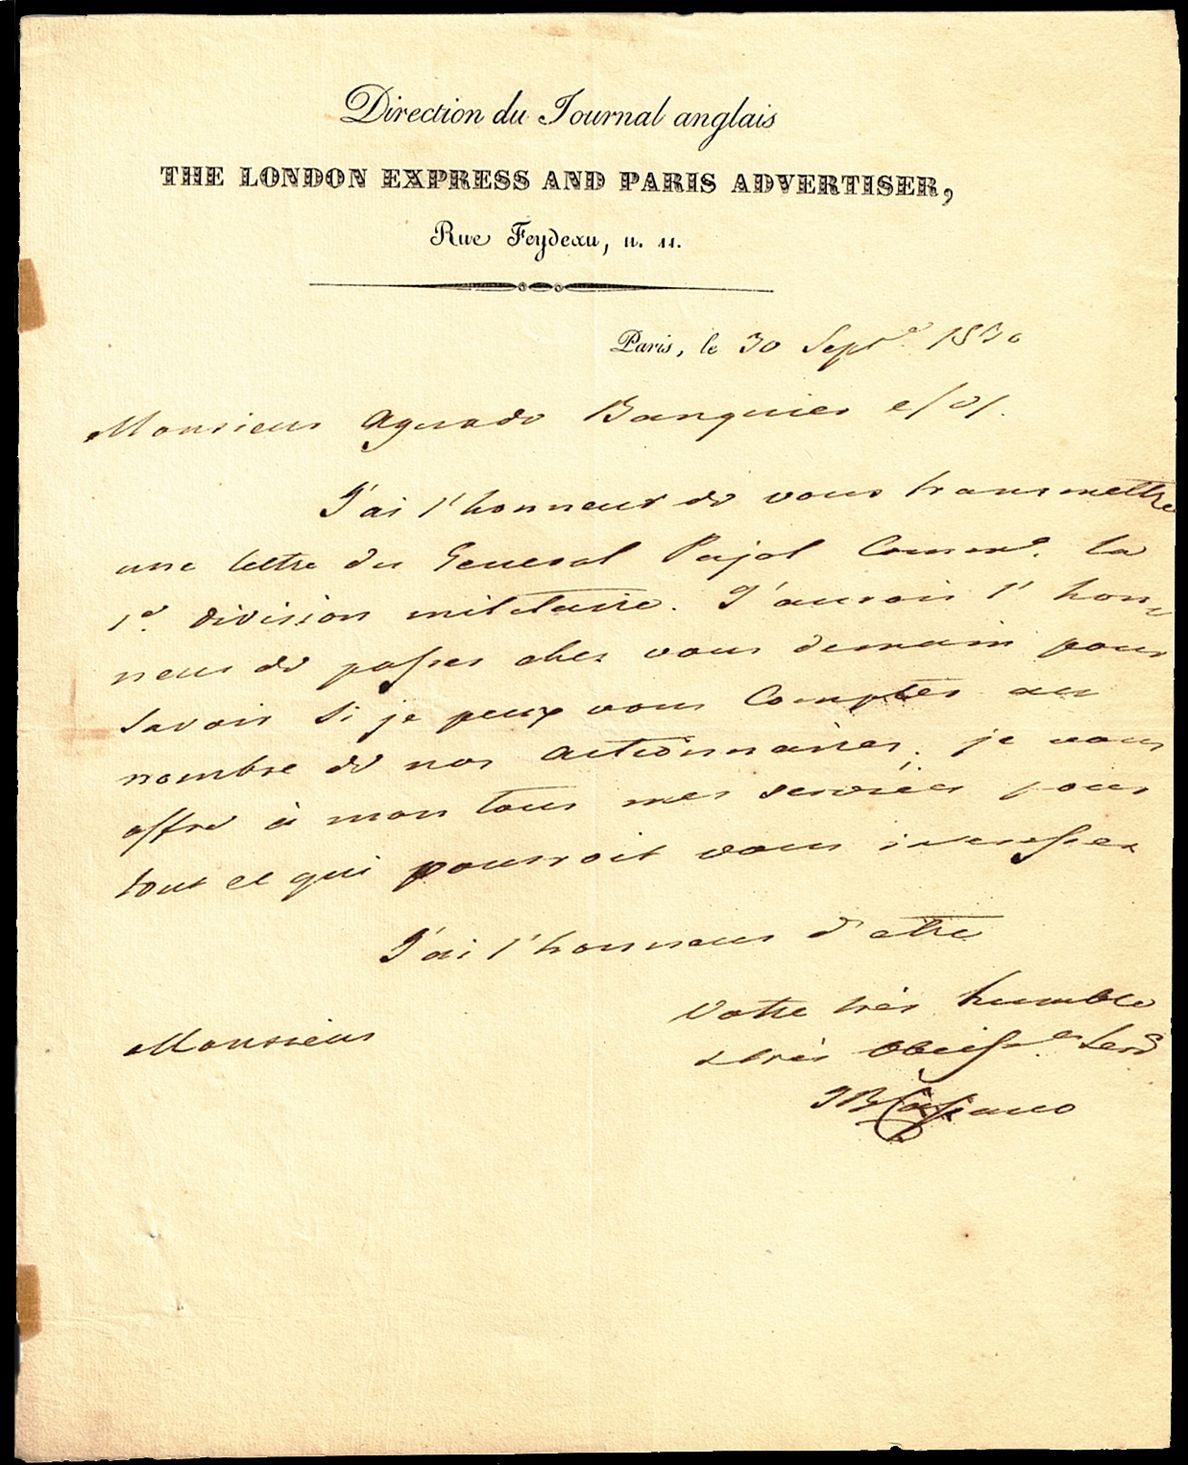 Direction du Journal anglais
THE LONDON EXPRESS AND PARIS ADVERTISER,
Rue Feydeau, n. 11.
Paris, le 30 Septe. 1830
Monsieur Aguado Banquier
J'ai l'honneur de vous transmettre
une lettre du General Pajol Commd. la
1e. division militaire. J'aurois l'hon-
neur de passer chez vous demain pour
savoir si je peux vous compter au
nombre de nos actionnaires, je vous
offre à mon tour mes services pour
tout ce qui pourroit vous interesser
J'ai l'honneur d'etre
Votre très humble
Monsieur
& très obeisst. Serv